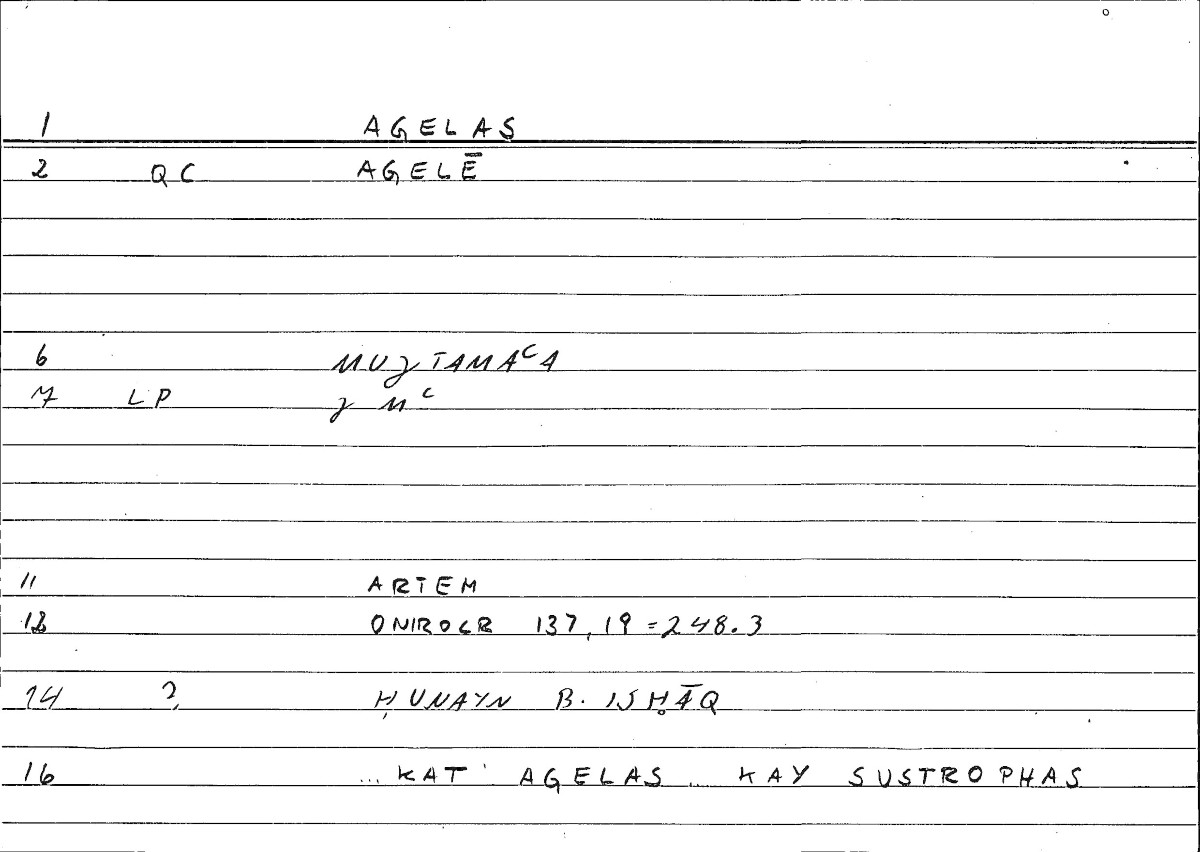 1 AGELAS
2 QC AGELĒ
6 MUJTAMAᶜA
7 LP J Mᶜ
11 ARTEM
12 ONIROCR 137,19 = 248.3
14 ? ḤUNAYN B. ISḤĀQ
16 ... KAT' AGELAS .. KAY SUSTROPHAS